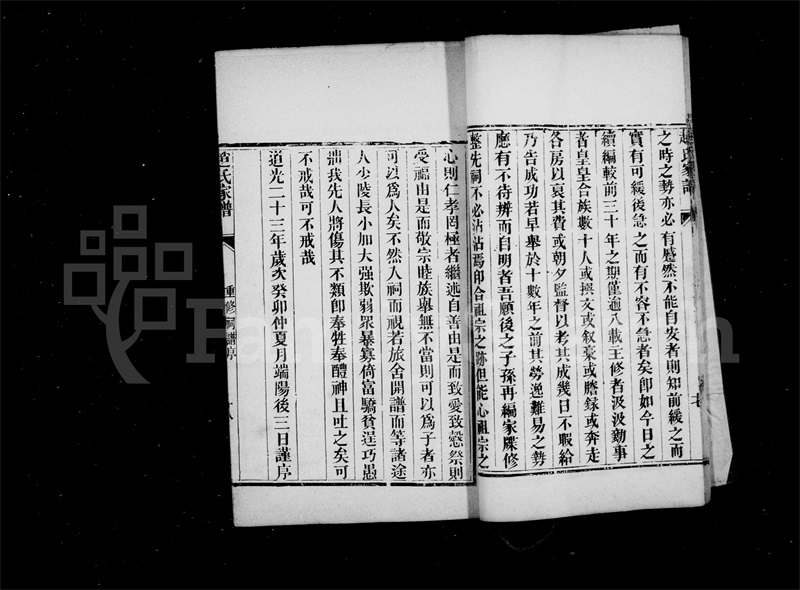 趙氏家譜
之時之勢亦必有蹙然不能自安者則知前緩之而
實有可緩後急之而有不容不急者矣卽如今日之
續編較前三十年之期僅逾八載主修者汲汲勤事
者皇皇合族數十人或撰文或叙稾或謄録或奔走
各房以裒其費或朝夕監督以考其成幾日不暇給
乃告成功若早舉於十數年之前其勞逸難易之勢
應有不待辨而自明者吾願後之子孫再編家牒修
整先祠不必沾沾焉印合祖宗之跡但能心祖宗之
心則仁孝罔極者繼述自善由是而致愛致慤祭則
受福由是而敬宗睦族舉無不當則可以爲子者亦
可以爲人矣不然入祠而視若旅舍開譜而等諸途
人少陵長小加大强欺弱眾暴寡倚富驕貧逞巧愚
拙我先人將傷其不類卽奉牲奉醴神且吐之矣可
不戒哉可不戒哉
道光二十三年歲次癸卯仲夏月端陽後三日謹序
氏家譜
重修祠譜序
十八